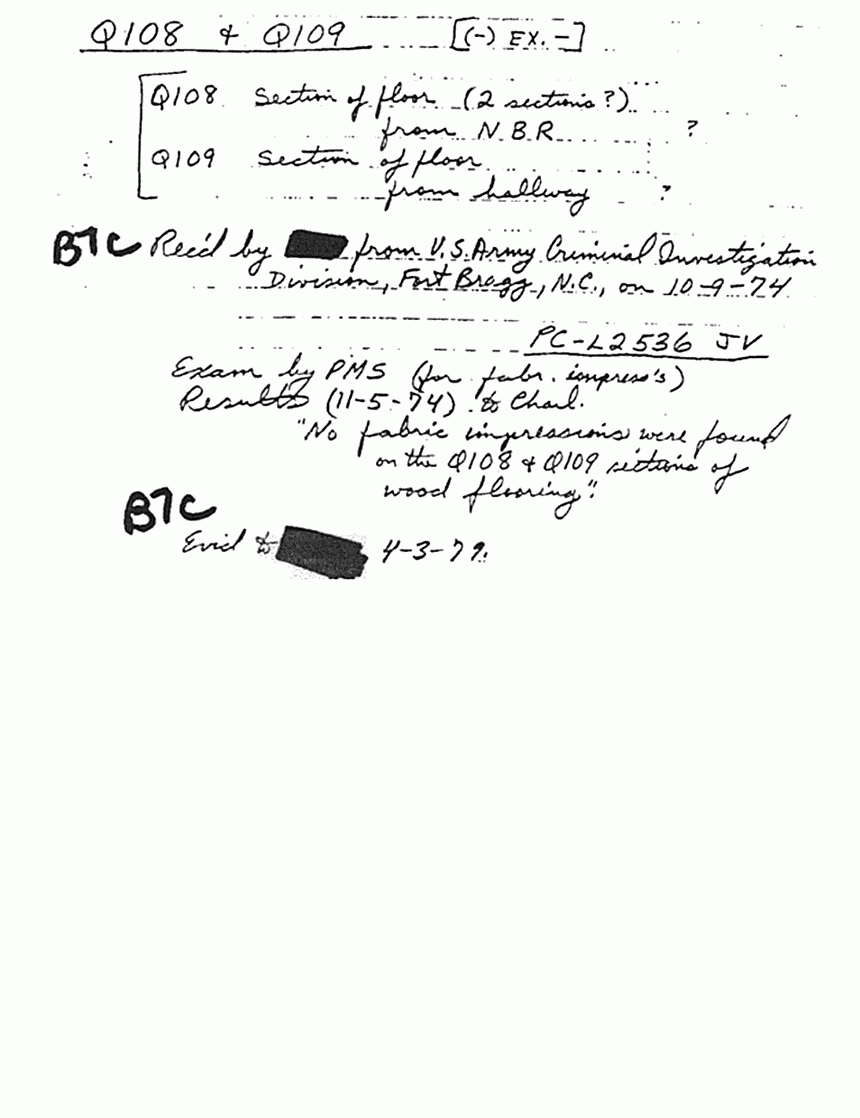 Q108 & Q109 [(-) EX. -]
Q108 Section of floor (2 sections?)
from N.B.R. ?
Q109 Section of floor
from hallway ?
B7C Rec'd by from U.S. Army Criminal Investigation
Division, Fort Bragg, N.C., on 10-9-74
PC-L2536 JV
Exam by PMS (for fabr. impress's)
Results (11-5-74) to Charl.
"No fabric impressions were found
on the Q108 & Q109 sections of
wood flooring".
B7C
Evid to 4-3-79.